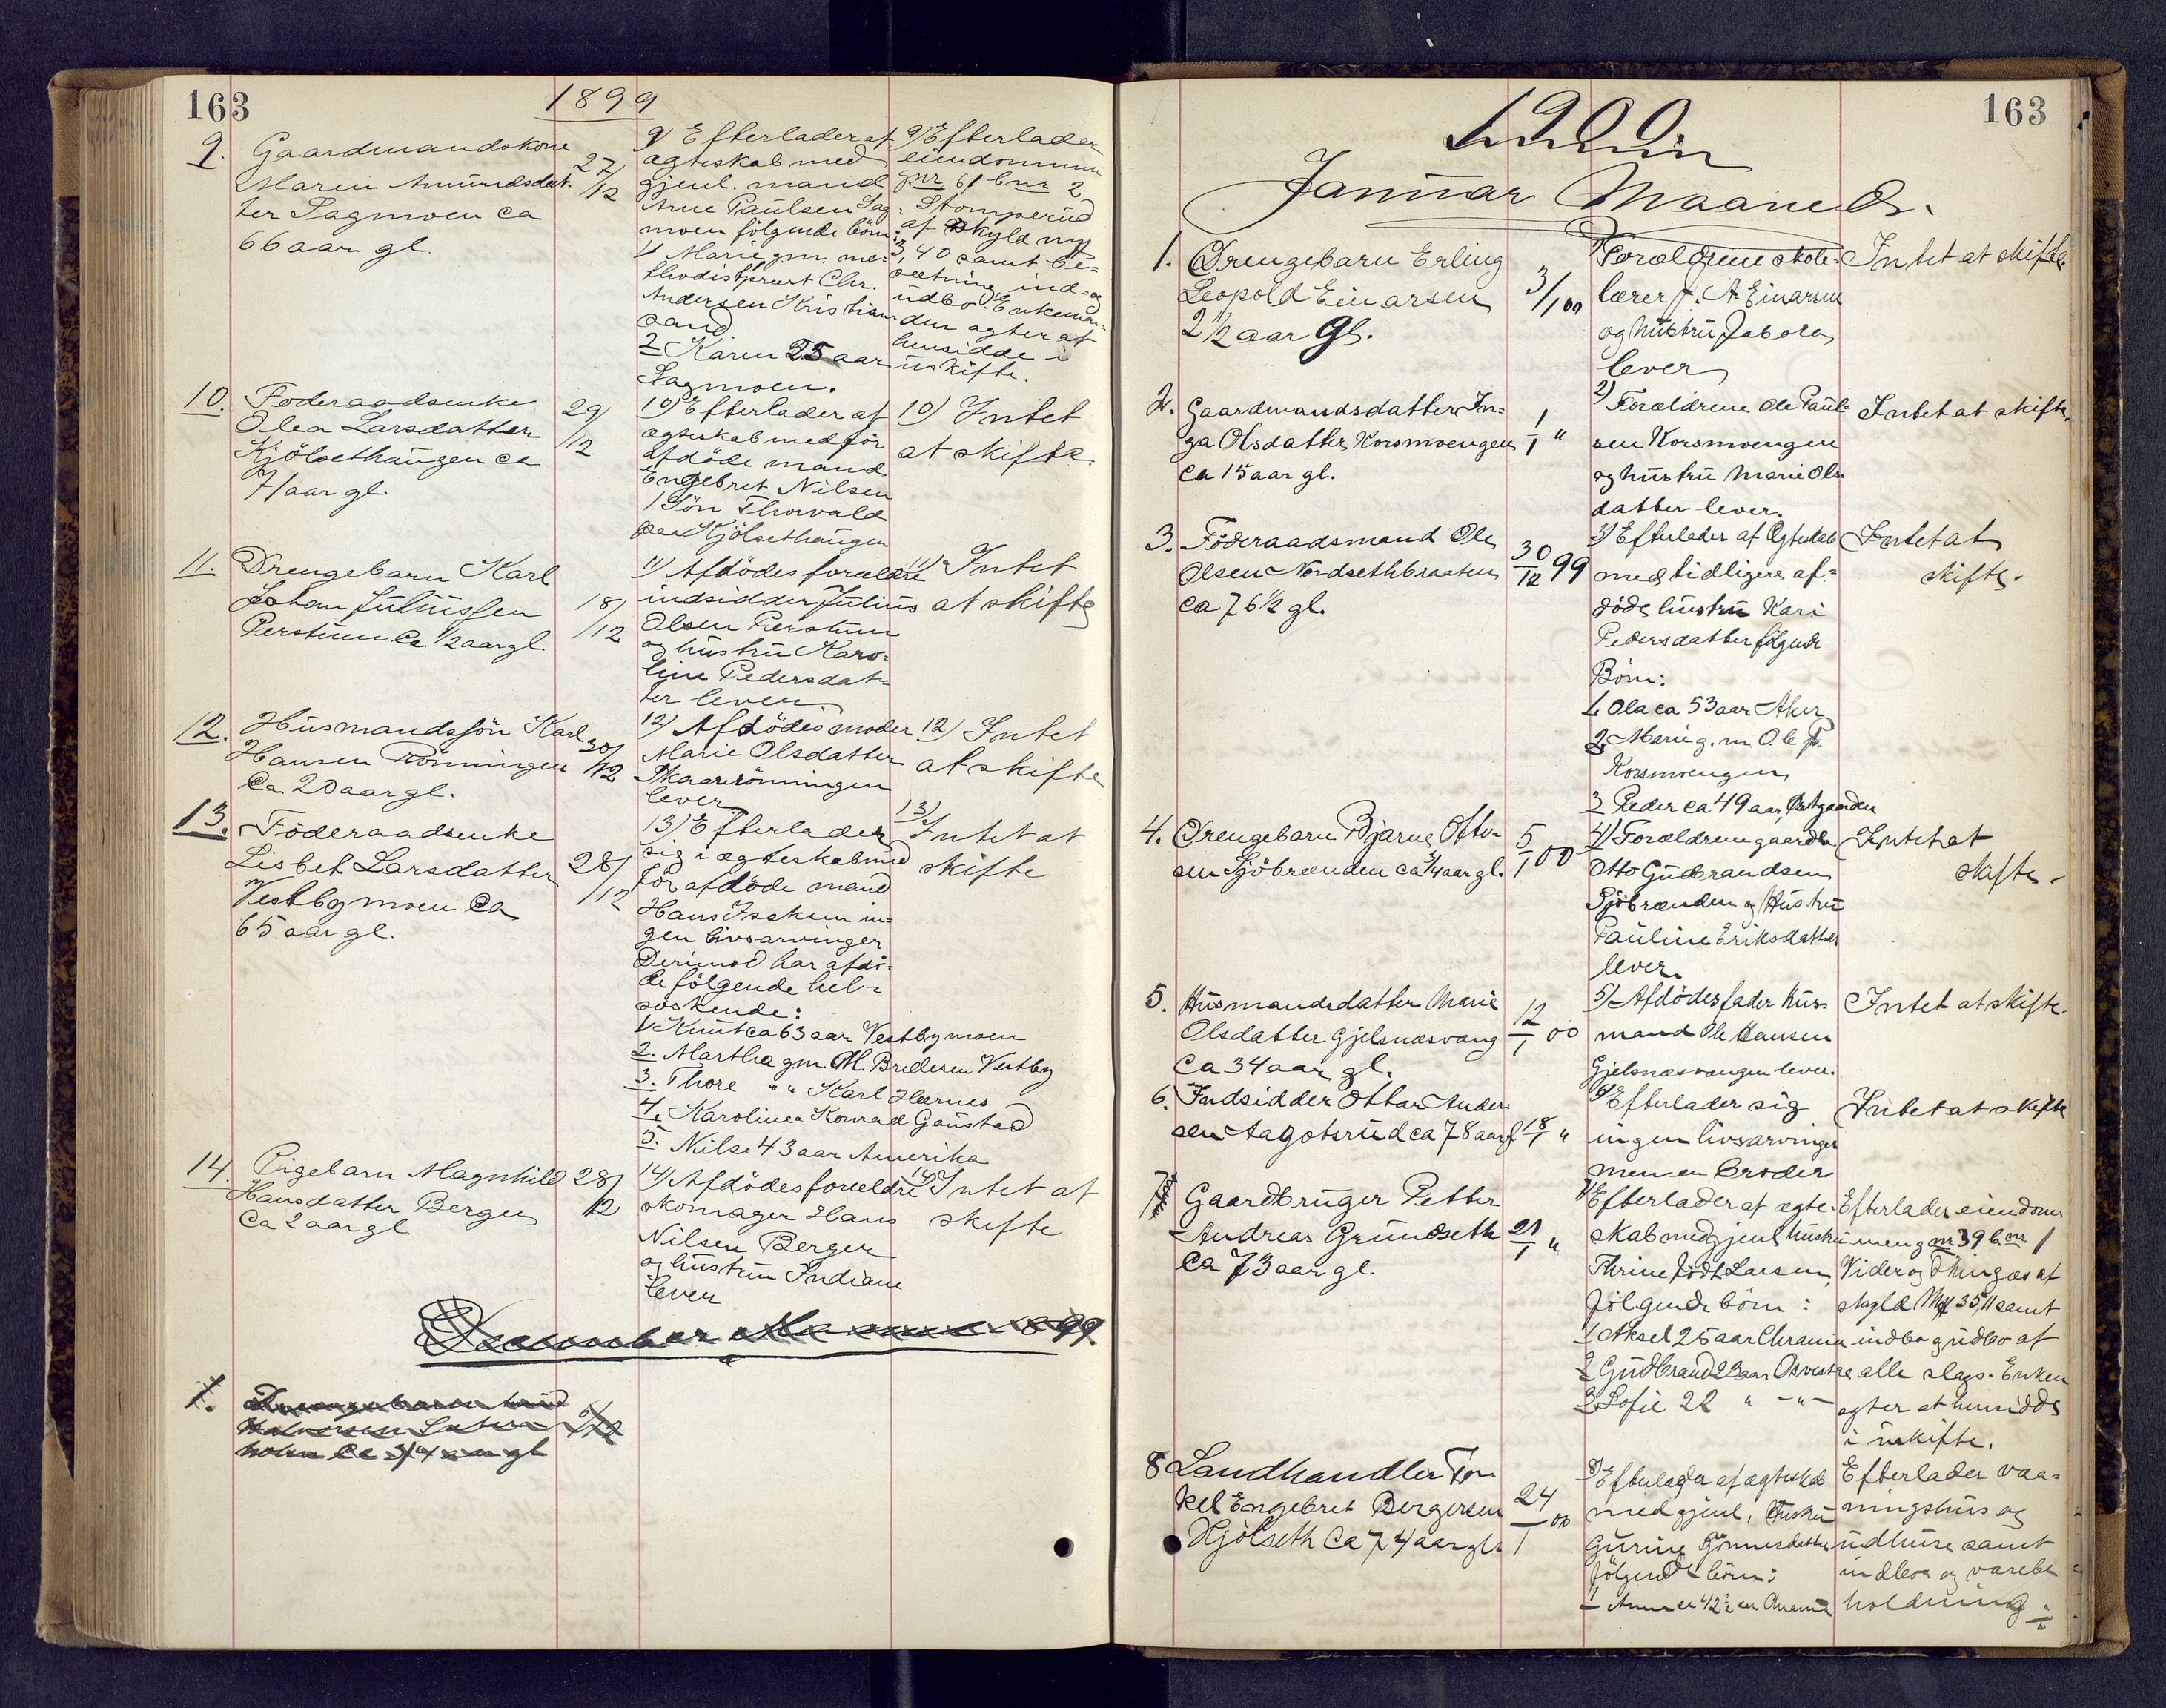 163
1899
9. Gaardmandskone
Maren Amundsdat-
ter Sagmoen ca
66 aar gl.
27/12
9) Efterlader af
ægteskab med
gjenl. mand
Arne Paulsen Sag-
moen følgende børn:
1 Marie g.m. me-
thodistpræst Chr.
Andersen Kristian-
sand
2 Karen 25 aar
Sagmoen.
9) Efterlader
eiendommen
gnr 61 bnr 2
Stomperud
af skyld my
3,40 samt be-
sætning, ind- og
udbo. Enkeman-
den agter at
hensidde i
uskifte.
10. Føderaadsenke
Olea Larsdatter
Kjölsethaugen ca
71 aar gl.
29/12
10) Efterlader af
ægteskab med før
afdöde mand
Engebret Nilsen
1 Sön Thorvald
paa Kjölsethaugen
10) Intet
at skifte.
11. Drengebarn Karl
Johan Juliussen
Perstuen Ca 1/2 aar gl.
18/12
11) Afdödes forældre
indsidder Julius
Olsen Perstuen
og hustru Karo-
line Pedersdat-
ter lever
11) Intet
at skifte
12. Husmandssön Karl
Hansen Rönningen
Ca 20 aar gl.
30/12
12) Afdödes moder
Marie Olsdatter
Skaarrönningen
lever
12) Intet
at skifte
13. Föderaadsenke
Lisbet Larsdatter
Vestbymoen Ca
65 aar gl.
28/12
13) Efterlader
sig i ægteskab med
för afdöde mand
Hans Isaksen in-
gen livsarvinger
Derimod har afdö-
de følgende hel-
söskende:
1 Knut ca 63 aar Vestbymoen
2. Martha gm. M. Bredesen Vestby
3. Thore " " Karl Hernes
4. Karoline " Konrad Gaustad
5. Nils 43 aar Amerika
13) Intet at
skifte
14. Pigebarn Magnhild
Hansdatter Berger
Ca 2 aar gl
28/12
14) Afdödes forældre
skomager Hans
Nilsen Berger
og hustru Indiane
lever
14) Intet at
skifte
December 1899
1. Drengebarn
Ca 3/4 aar gl
163
1900.
Januar Maaned.
1. Drengebarn Erling
Leopold Einarsen
2 1/2 aar gl.
3/1 00
1) Forældrene skole-
lærer J. A. Einarsen
og hustru Jabola
lever
Intet at skifte.
2. Gaardmandsdatter In-
ga Olsdatter Korsmoengen
Ca 15 aar gl.
1/1 "
2) Forældrene Ole Paul-
sen Korsmoengen
og hustru Marie Ols-
datter lever.
Intet at skifte.
3. Föderaadsmand Ole
Olsen Nordsethbraaten
Ca 76 1/2 gl.
30/12 99
3) Efterlader af Ægteskab
med tidligere af-
döde hustru Kari
Pedersdatter følgende
Børn:
1. Ola ca 53 aar Aker
2. Marie g. m Ole P.
Korsmoengen
3 Peder ca 49 aar, Prestgaarden
Intet at
skifte.
4. Drengebarn Bjarne Otto-
sen Sjöbrænden ca 3/4 aar gl.
5/1 00
4) Forældrene gaardbr
Otto Gudbrandsen
Sjöbrænden og Hustru
Pauline Eriksdatter
lever.
Intet at
skifte.
5. Husmandsdatter Marie
Olsdatter Gjelsnæsvang
Ca 34 aar gl.
12/1 00
5) Afdödes fader Hus-
mand Ole Hansen
Gjelsnæsvangen lever.
Intet at skifte.
6. Indsidder Ottar Ander-
sen Aagotsrud ca 78 aar gl
18/1 "
6) Efterlader sig
ingen livsarvinger
men en broder
Intet at skifte
7) Gaardbruger Petter
Andreas Grundseth
Ca 73 aar gl.
21/1 "
7) Efterlader af ægte-
skab med gjenl. hustru
Thrine født Larsen
følgende børn:
1 Aksel 25 aar Chrania
2 Gudbrand 23 aar Osvestre
3 Sofie 22 " - " -
Efterlader eiendom-
men gnr 39 bnr 1
Vider og Thingæs af
skyld My 35,11 samt
indbo og udbo af
alle slags. Enken
agter at hensidde
i uskifte.
8 Landhandler Tor-
kel Engebret Bergersen
Hjölseth Ca 74 aar gl.
24/1 00
8) Efterlader af ægteskab
med gjenl. Hustru
Gurine Gunnersdatter
følgende børn:
1 Anne ca 42 1/2 aar Chrania
Efterlader vaa-
ningshus og
udhuse samt
indbo og varebe-
holdning